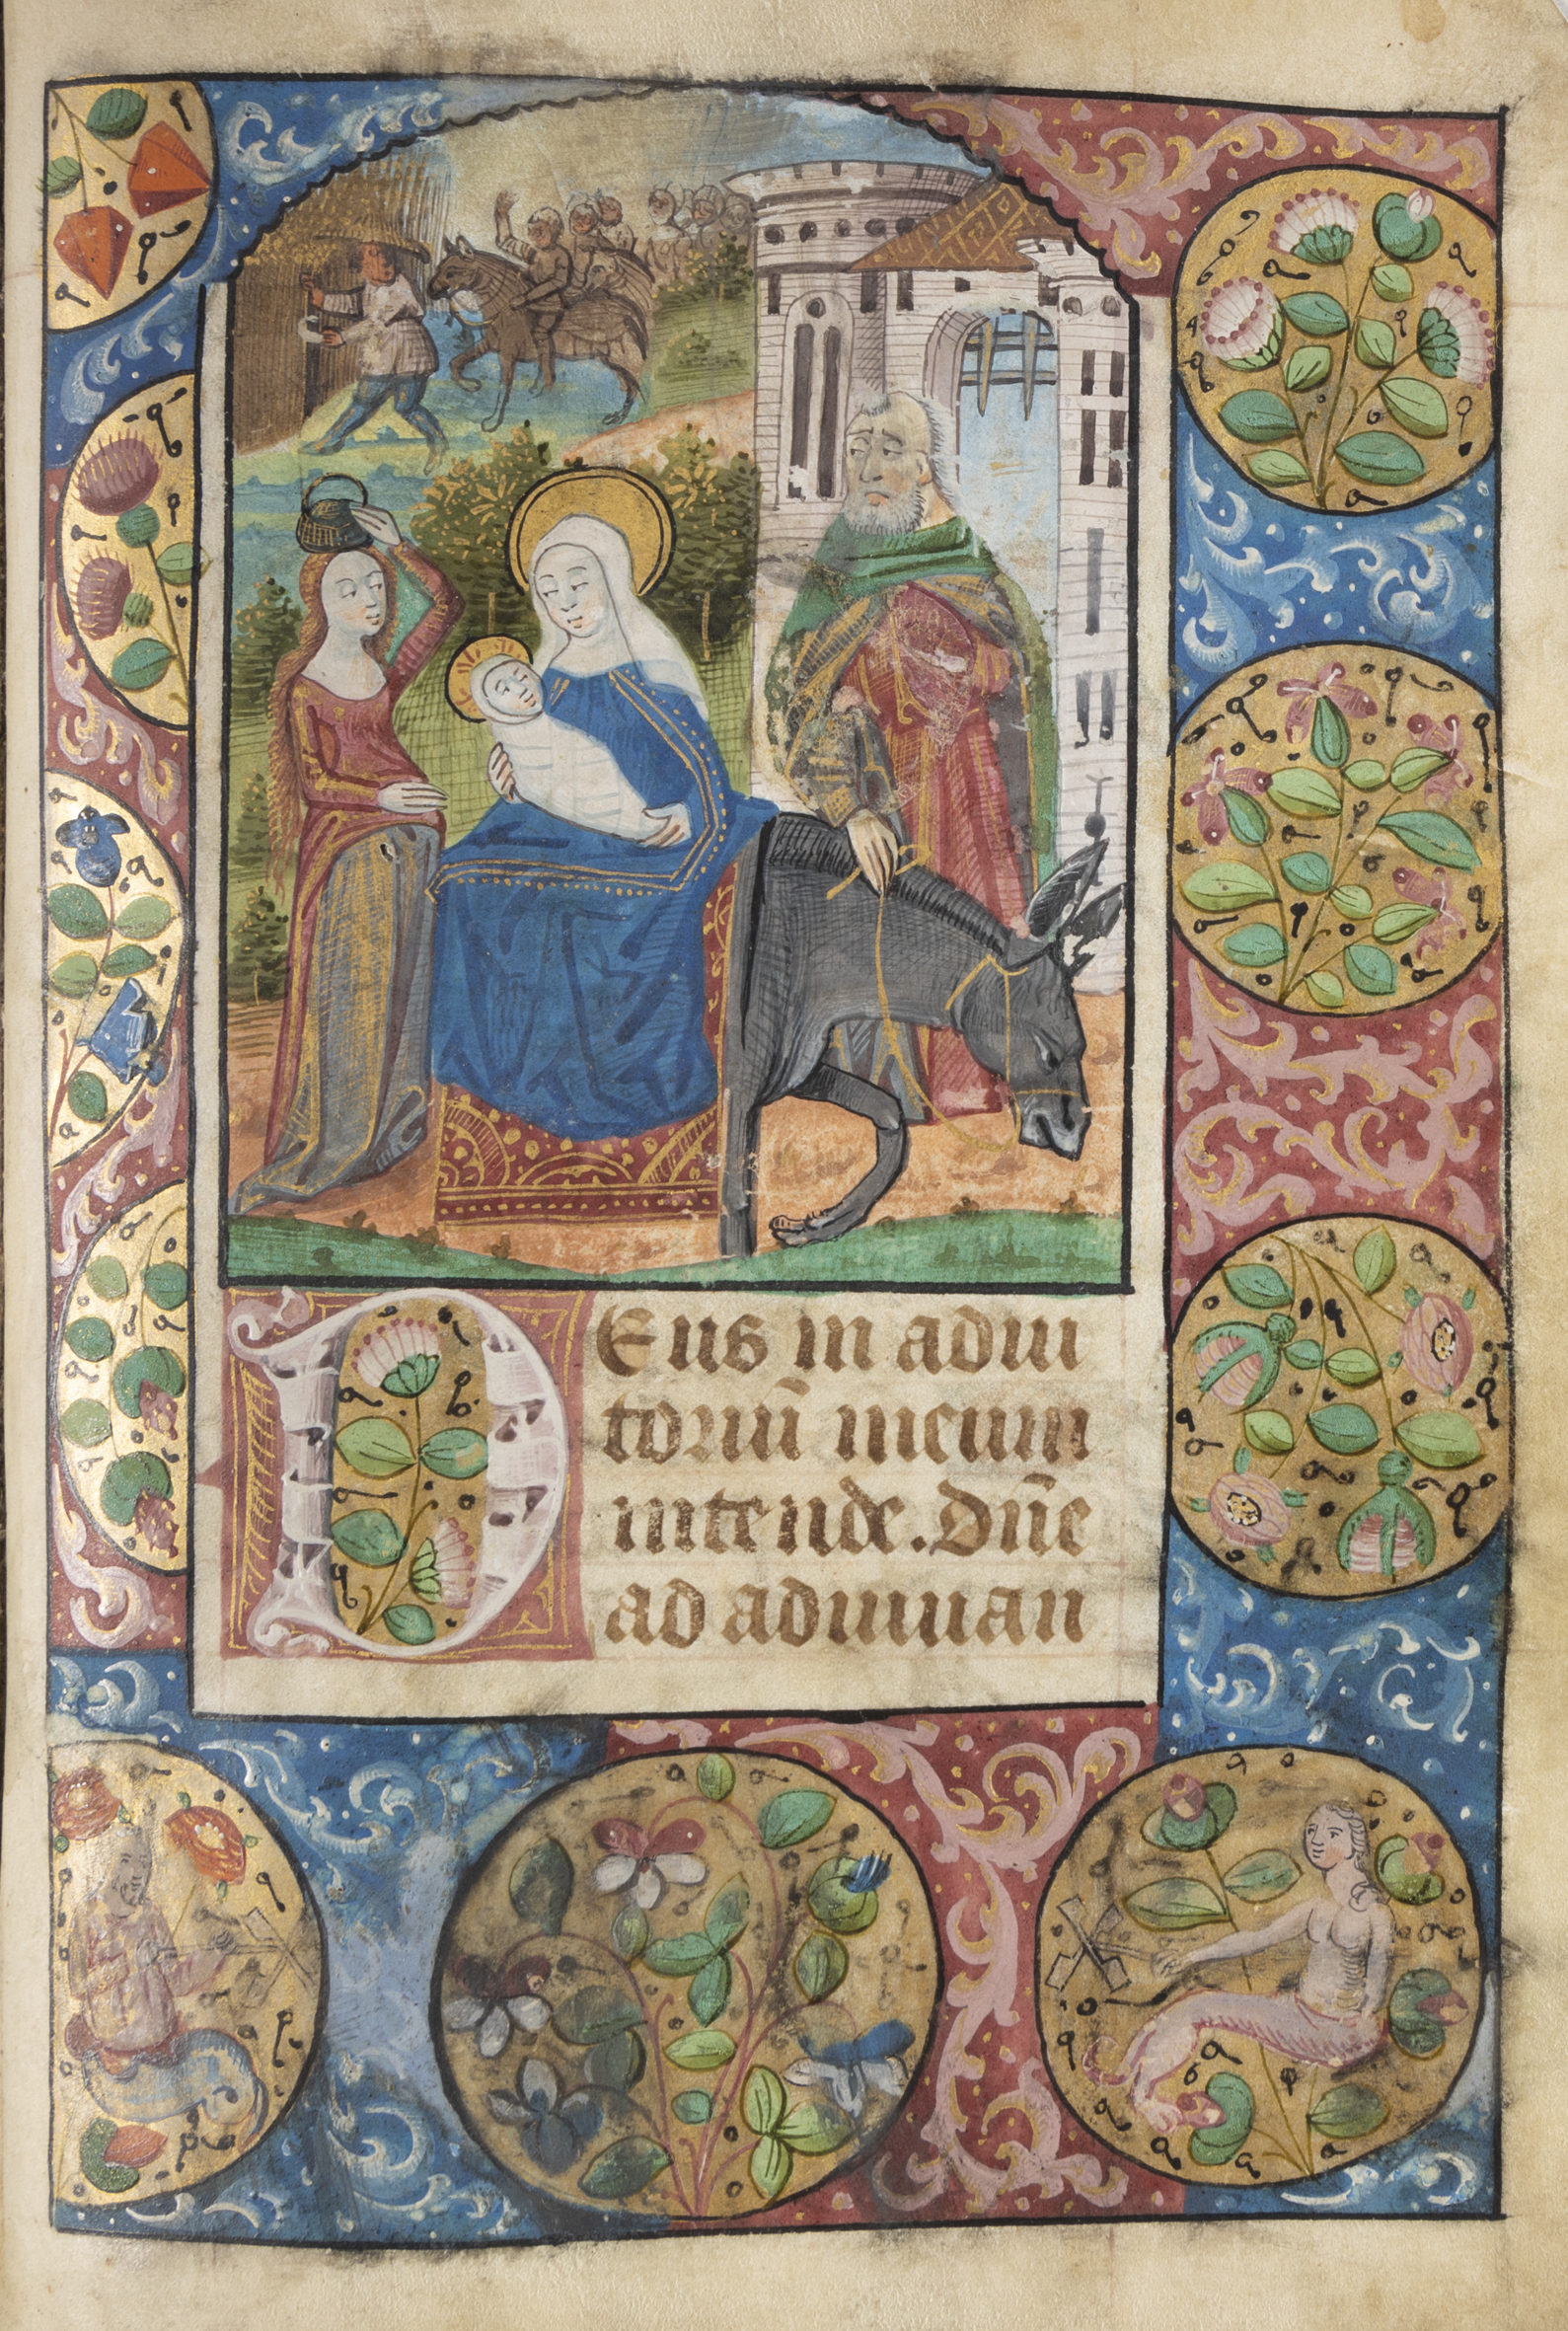 Deus in adiu
toriū meum
intende. Dn̄e
ad adiuuan